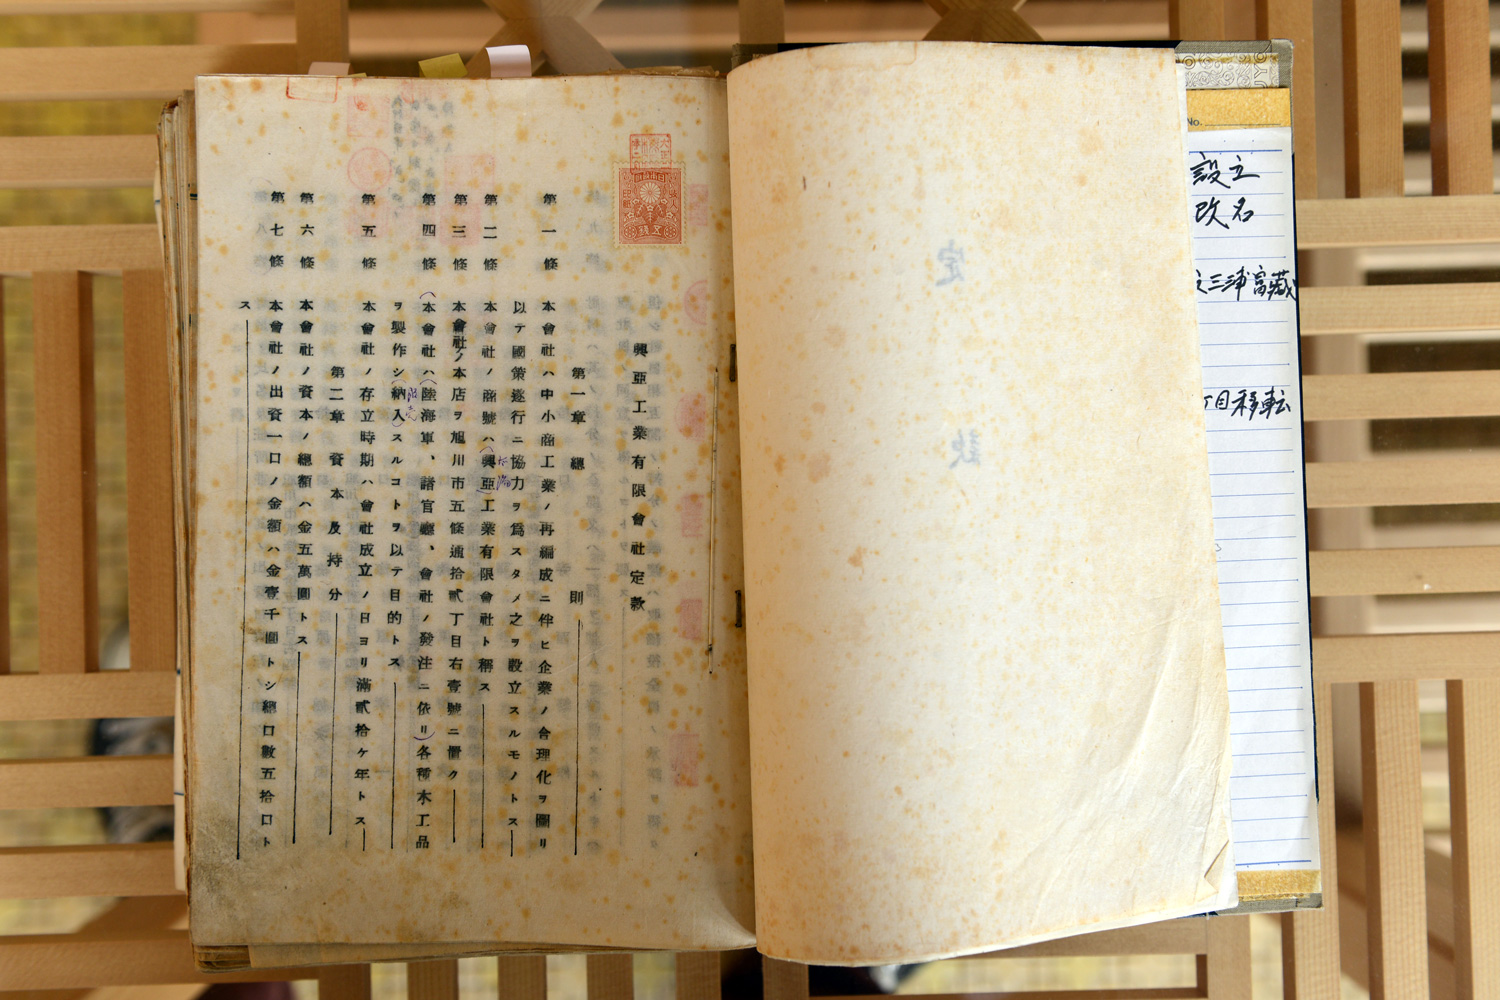 設立
改名
三浦富藏
丁目移転
No.
定款
興亞工業有限會社定款
第一章 總 則
第一條 本會社ハ中小商工業ノ再編成ニ伴ヒ企業ノ合理化ヲ圖リ
以テ國策遂行ニ協力ヲ爲スタメ之ヲ設立スルモノトス
第二條 本會社ノ商號ハ(興亞)工業有限會社ト稱ス
第三條 本會社ノ本店ヲ旭川市五條通拾貳丁目右壹號ニ置ク
第四條 (本會社ハ(陸海軍、諸官廳、會社ノ發注ニ依リ)各種木工品
ヲ製作シ(納入)スルコトヲ以テ目的トス
第五條 本會社ノ存立時期ハ會社成立ノ日ヨリ滿貳拾ケ年トス
第二章 資本及持分
第六條 本會社ノ資本ノ總額ハ金五萬圓トス
第七條 本會社ノ出資一口ノ金額ハ金壹千圓トシ總口數五拾口ト
ス